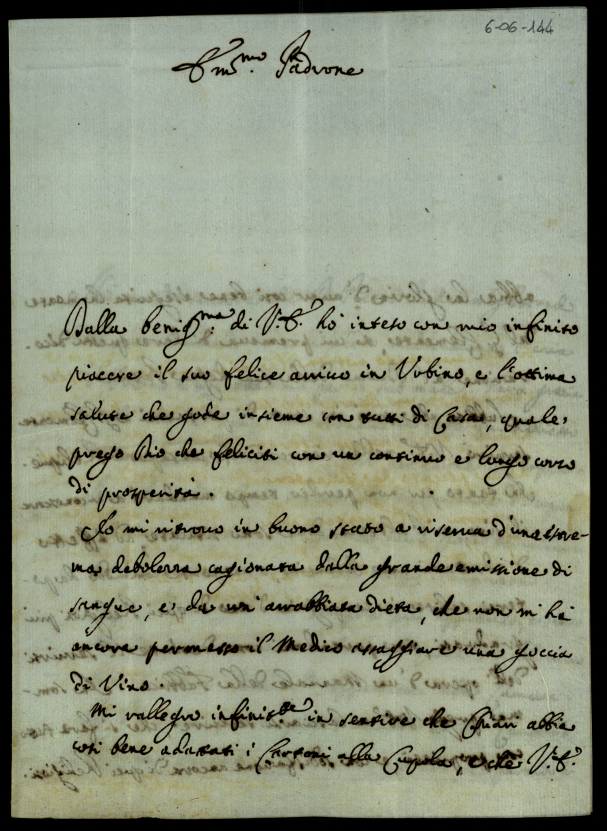 6-06-144
Em.mo Padrone
Dalla benig.ma di V.E. hò inteso con mio infinito
piacere il suo felice arrivo in Urbino, e l'ottima
salute che gode insieme con tutti di Casa, quale
prego Dio che feliciti con un continuo e lungo corso
di prosperità.
Io mi ritrovo in buono stato a riserva d'una estre-
ma debolezza cagionata dalla grande emissione di
sangue, e da un' arrabbiata dieta, che non mi hà
ancora permesso il Medico assaggiare una goccia
di Vino.
Mi rallegro infinit.te in sentire che Chiari abbia
così bene adattati i Cartoni alla Cupola, e che V.E.